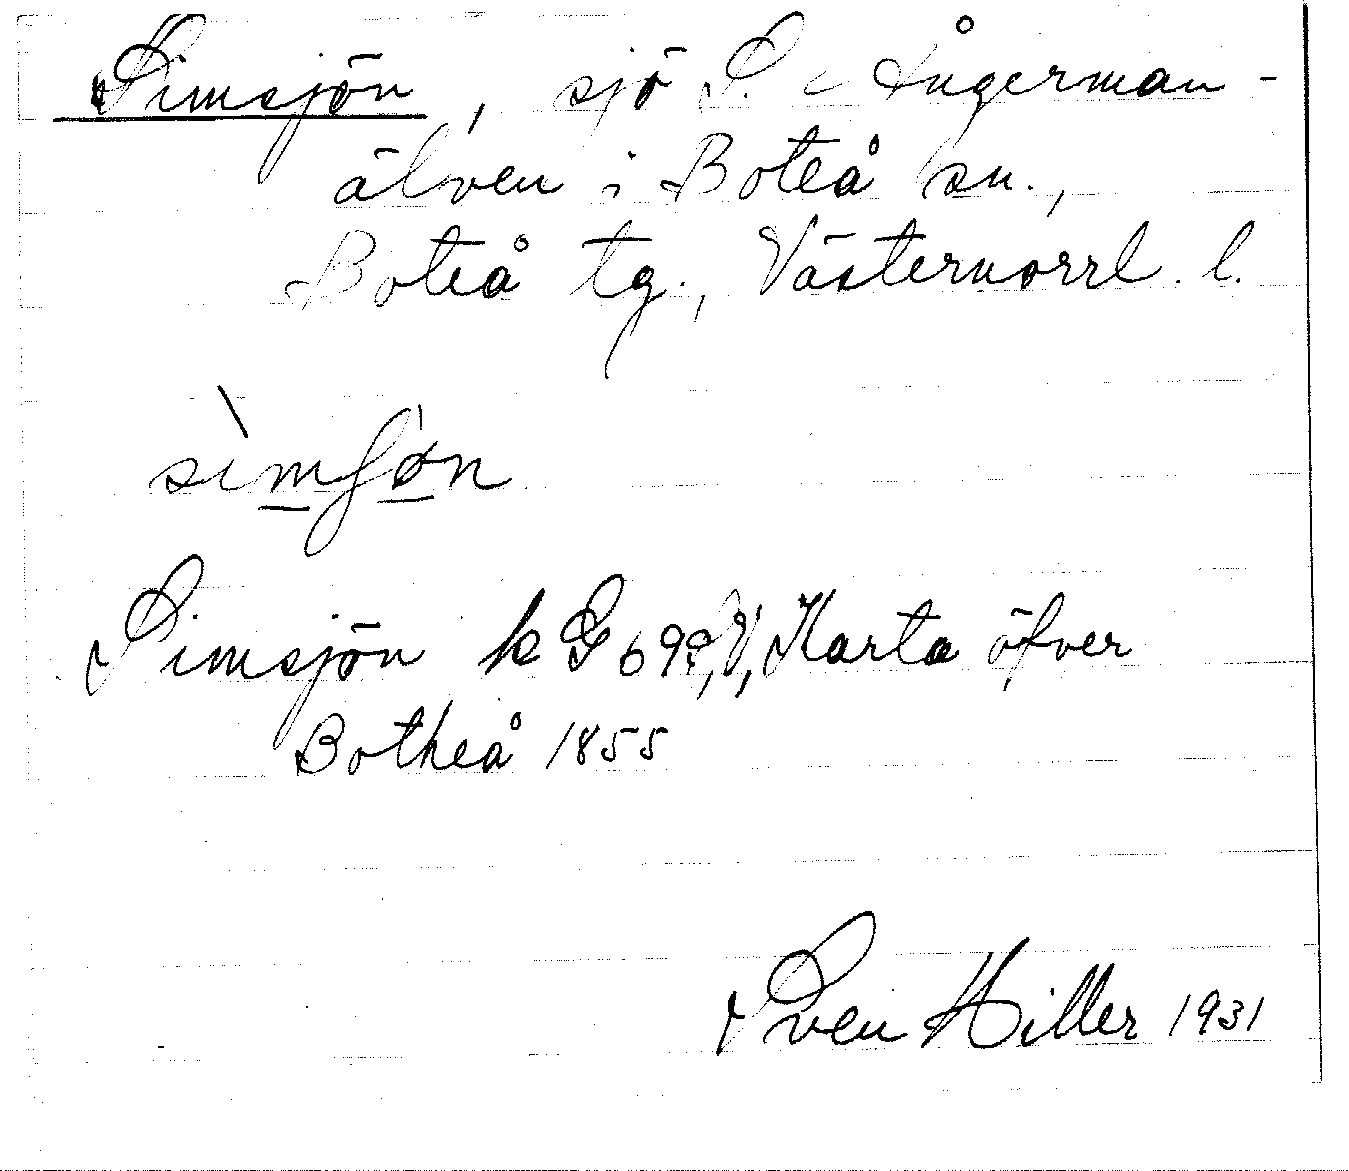 Simsjön, sjö S. Ångerman-
älven i Boteå sn.,
Boteå tg., Västernorrl. l.
sìmʃøn
Simsjön k G Karta öfver
Botheå 1855
Sven Hiller 1931